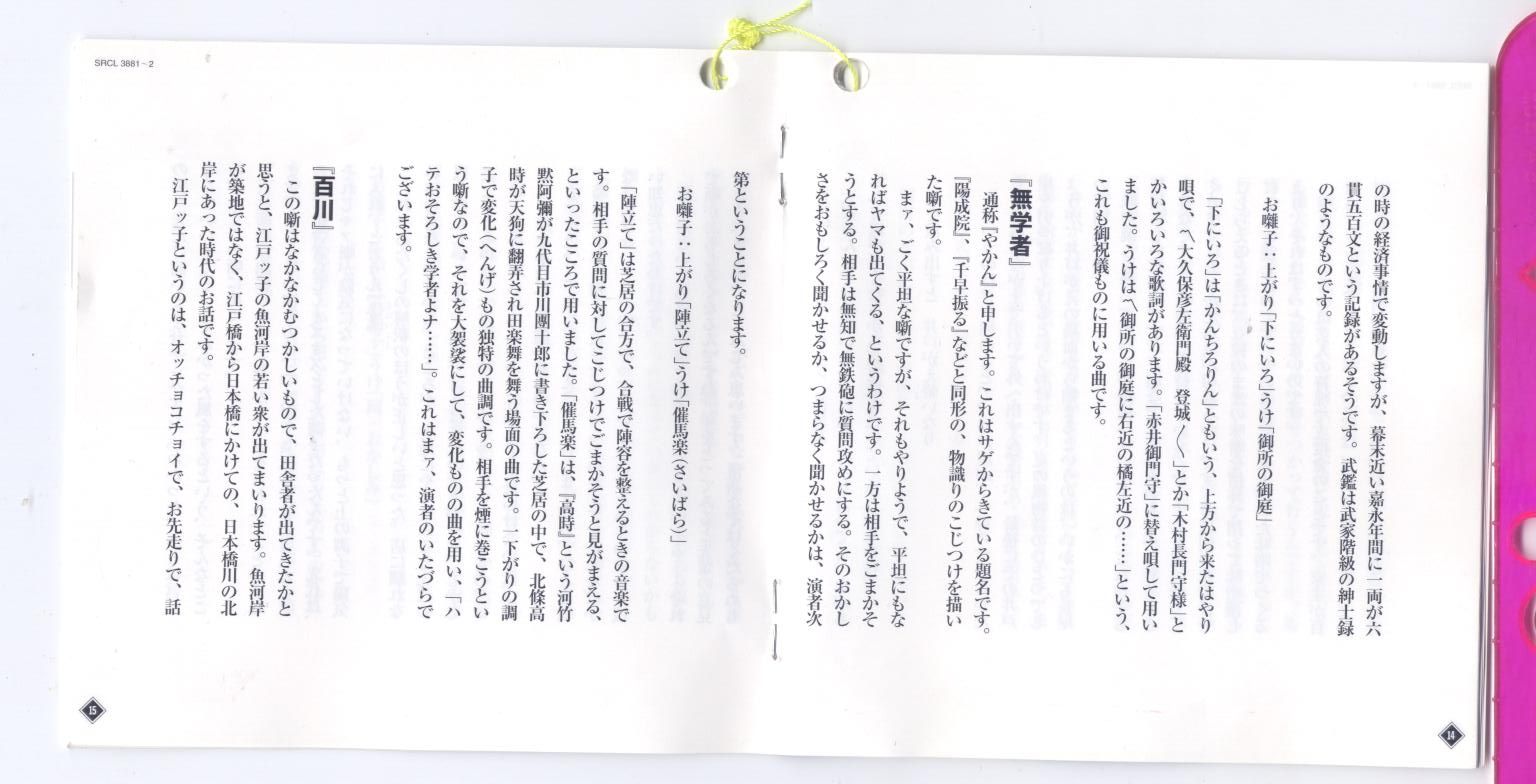 の時の経済事情で変動しますが、幕末近い嘉永年間に一両が六
貫五百文という記録があるそうです。武鑑は武家階級の紳士録
のようなものです。
お囃子：上がり「下にいろ」うけ「御所の御庭」
「下にいろ」は「かんちろりん」ともいう、上方から来たはやり
唄で、〽大久保彦左衛門殿　登城〳〵」とか「木村長門守様」と
かいろいろな歌詞があります。「赤井御門守」に替え唄して用い
ました。うけは〽御所の御庭に右近の橘左近の……」という、
これも御祝儀ものに用いる曲です。
『無学者』
通称『やかん』と申します。これはサゲからきている題名です。
『陽成院』、『千早振る』などと同形の、物識りのこじつけを描い
た噺です。
まァ、ごく平坦な噺ですが、それもやりようで、平坦にもな
ればヤマも出てくる、というわけです。一方は相手をごまかそ
うとする。相手は無知で無鉄砲に質問攻めにする。そのおかし
さをおもしろく聞かせるか、つまらなく聞かせるかは、演者次
14
SRCL 3881〜2
第ということになります。
お囃子：上がり「陣立て」うけ「催馬楽（さいばら）」
「陣立て」は芝居の合方で、合戦で陣容を整えるときの音楽で
す。相手の質問に対してこじつけでごまかそうと見がまえる、
といったこころで用いました。「催馬楽」は、『高時』という河竹
黙阿彌が九代目市川團十郎に書き下ろした芝居の中で、北條高
時が天狗に翻弄され田楽舞を舞う場面の曲です。一下がりの調
子で変化（へんげ）もの独特の曲調です。相手を煙に巻こうとい
う噺なので、それを大袈裟にして、変化ものの曲を用い、「ハ
テおそろしき学者よナ……」。これはまァ、演者のいたづらで
ございます。
『百川』
この噺はなかなかむつかしいもので、田舎者が出てきたかと
思うと、江戸ッ子の魚河岸の若い衆が出てまいります。魚河岸
が築地ではなく、江戸橋から日本橋にかけての、日本橋川の北
岸にあった時代のお話です。
江戸ッ子というのは、オッチョコチョイで、お先走りで、話
15